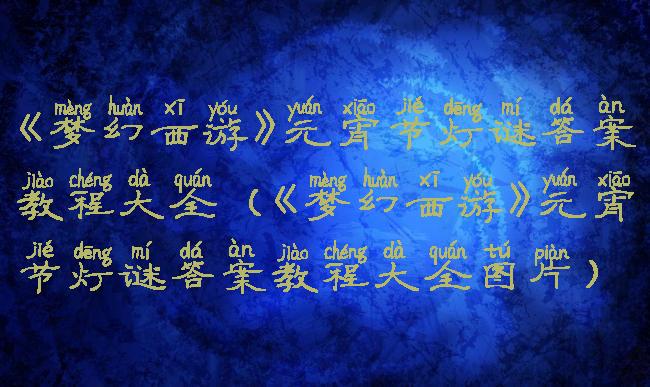 mèng huàn xī yóu yuán xiāo jié dēng mí dá àn
《梦幻西游》元宵节灯谜答案
jiào chéng dà quán mèng huàn xī yóu yuán xiāo
教程大全（《梦幻西游》元宵
jié dēng mí dá àn jiào chéng dà quán tú piàn
节灯谜答案教程大全图片）